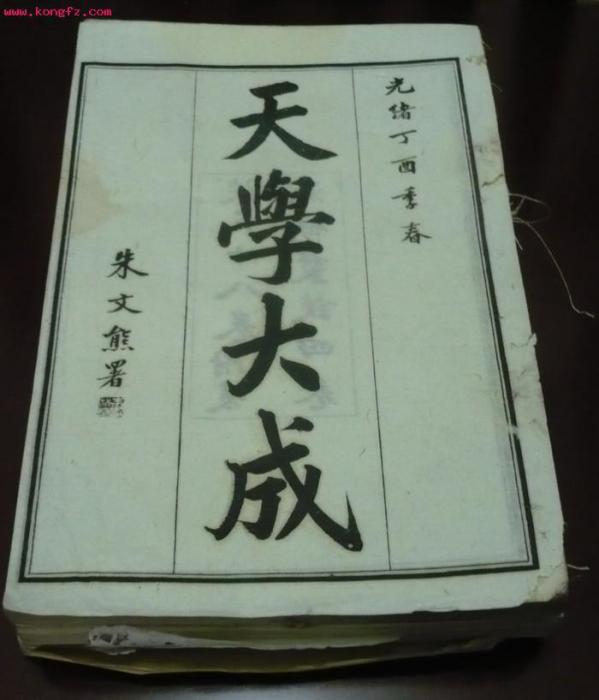 www.kongfz.com
光緒丁酉季春
天學大成
朱文熊署